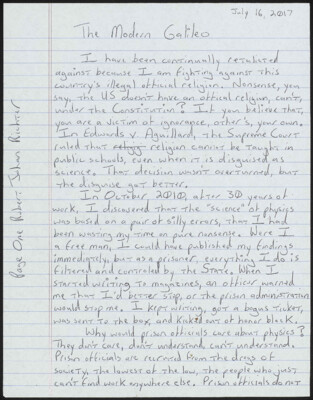 July 16, 2017
The Modern Galileo
I have been continually retaliated
against because I am fighting against this
country's illegal official religion. Nonsense, you
say, the US doesn't have an official religion, can't,
under the Constitution? If you believe that,
you are a victim of ignorance, other's, your own.
In Edwards v Aguillard, the Supreme Court
ruled that religion cannot be taught in
public schools, even when it is disguised as
science. That decision wasn't overturned, but
the disguise got better.
In October, 2010, after 30 years of
work, I discovered that the "science" of physics
was based on a pair of silly errors, that I had
been wasting my time on pure nonsense. Were I
a free man, I could have published my findings
immediatly, but as a prisoner, everything I do is
filtered and controled by the State. When I
started writing to magazines, an officer warned
me that I'd better stop, or the prison administration
would stop me. I kept writing, got a bogus ticket,
was sent to the box, and kicked out of honor block.
Why would prison officials care about physics?
They don't care, don't understand, can't understand.
Prison officials are recruited from the dregs of
society, the lowest of the low, the people who just
can't find work anywhere else. Prison officials do not
Page One Robert John Richter